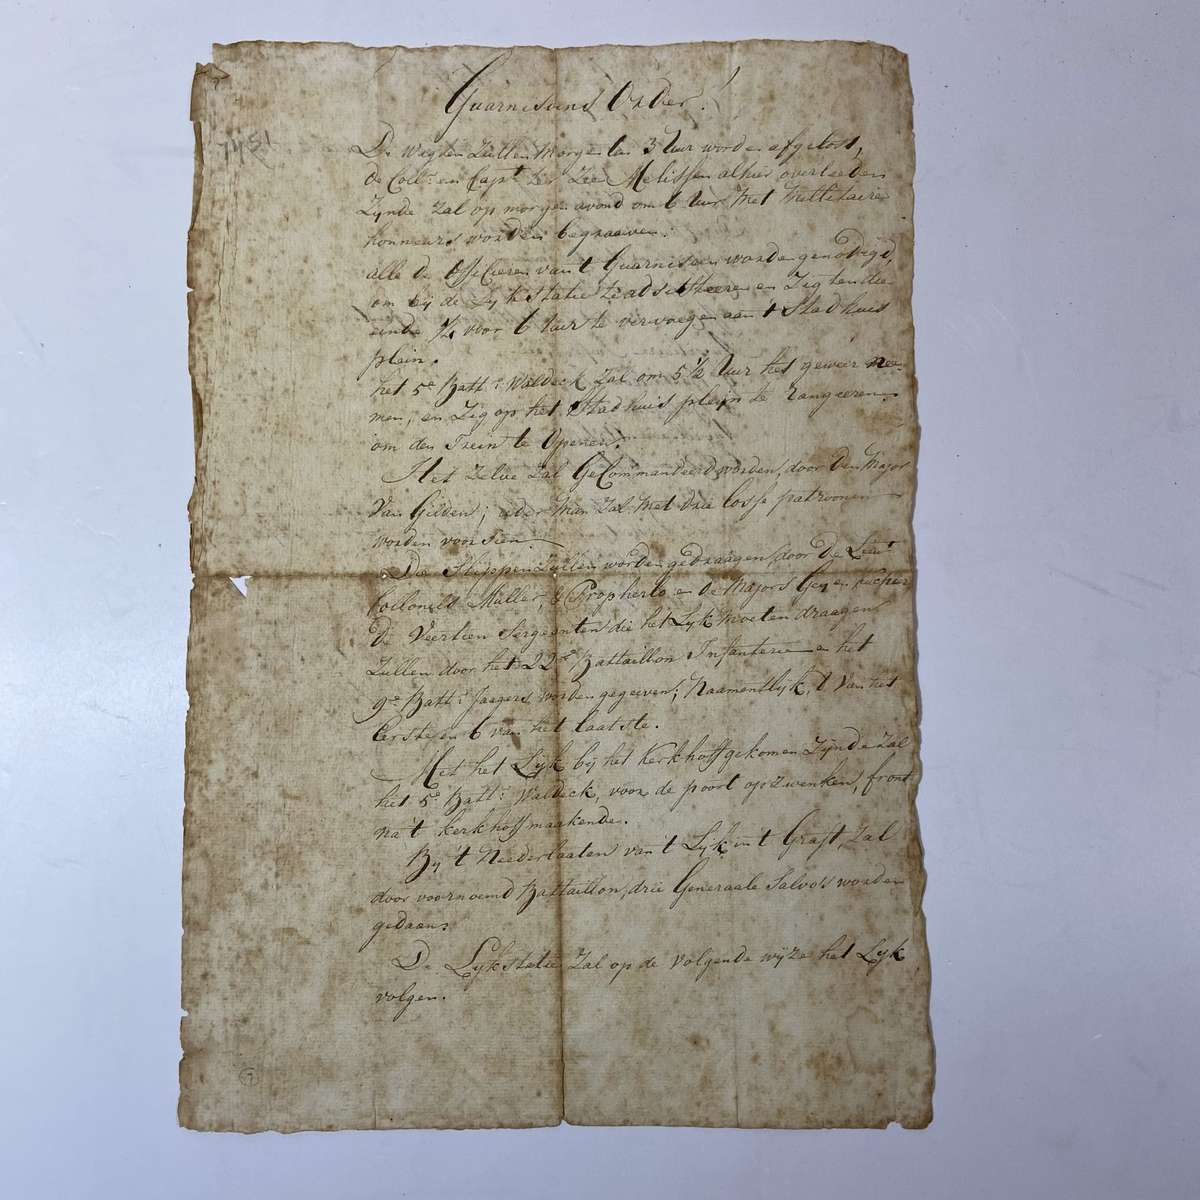 Guarnisoens Order!
7451
De wagten Zullen Morgen ten 3 Uur worden afgelost,
de Coll: en Capt ter Zee Melissen alhier overleeden
Zynde Zal op morgen avond om 6 Uur Met Millitaire
honneurs worden begraaven.
alle de Officieren van 't Guarnisoen worden genodigd,
om bij de Lykstatie te adsisteeren en Zig ten die
einde ¼ voor 6 Uur te vervoegen aan 't Stadhuis
plein.
het 5e Batt: Waldeck Zal om 5½ Uur het geweer nee-
men, en Zig op het Stadhuis pleijn te rangeeren
om den Trein te Openen.
Het Zelve Zal GeCommandeerd worden door den Major
Van Gilden; ider Man Zal Met drie losse patroonen
worden voorsien.
Die Slippen Zullen worden gedraagen door de Lieut
Collonels Muller, & Propherto en de Majors en
De Veertien Sergeanten die het Lyk Moeten draagen
Zullen door het 22e Battaillon Infanterie en het
9e Batt: Jaagers worden gegeeven; Naamentlyk, 8 Van het
Eerste en 6 van het laatste.
Met het Lyk bij het Kerkhoff gekomen Zijnde Zal
het 5e Batt: Waldeck, voor de poort opzwenken, front
na't kerkhoff maakende.
By 't Neederlaaten van 't Lyk in 't Graft, Zal
door voornoemd Battaillon, drie Generaale Salvos worden
gedaan.
De Lykstatie Zal op de volgende wyze het Lyk
volgen.